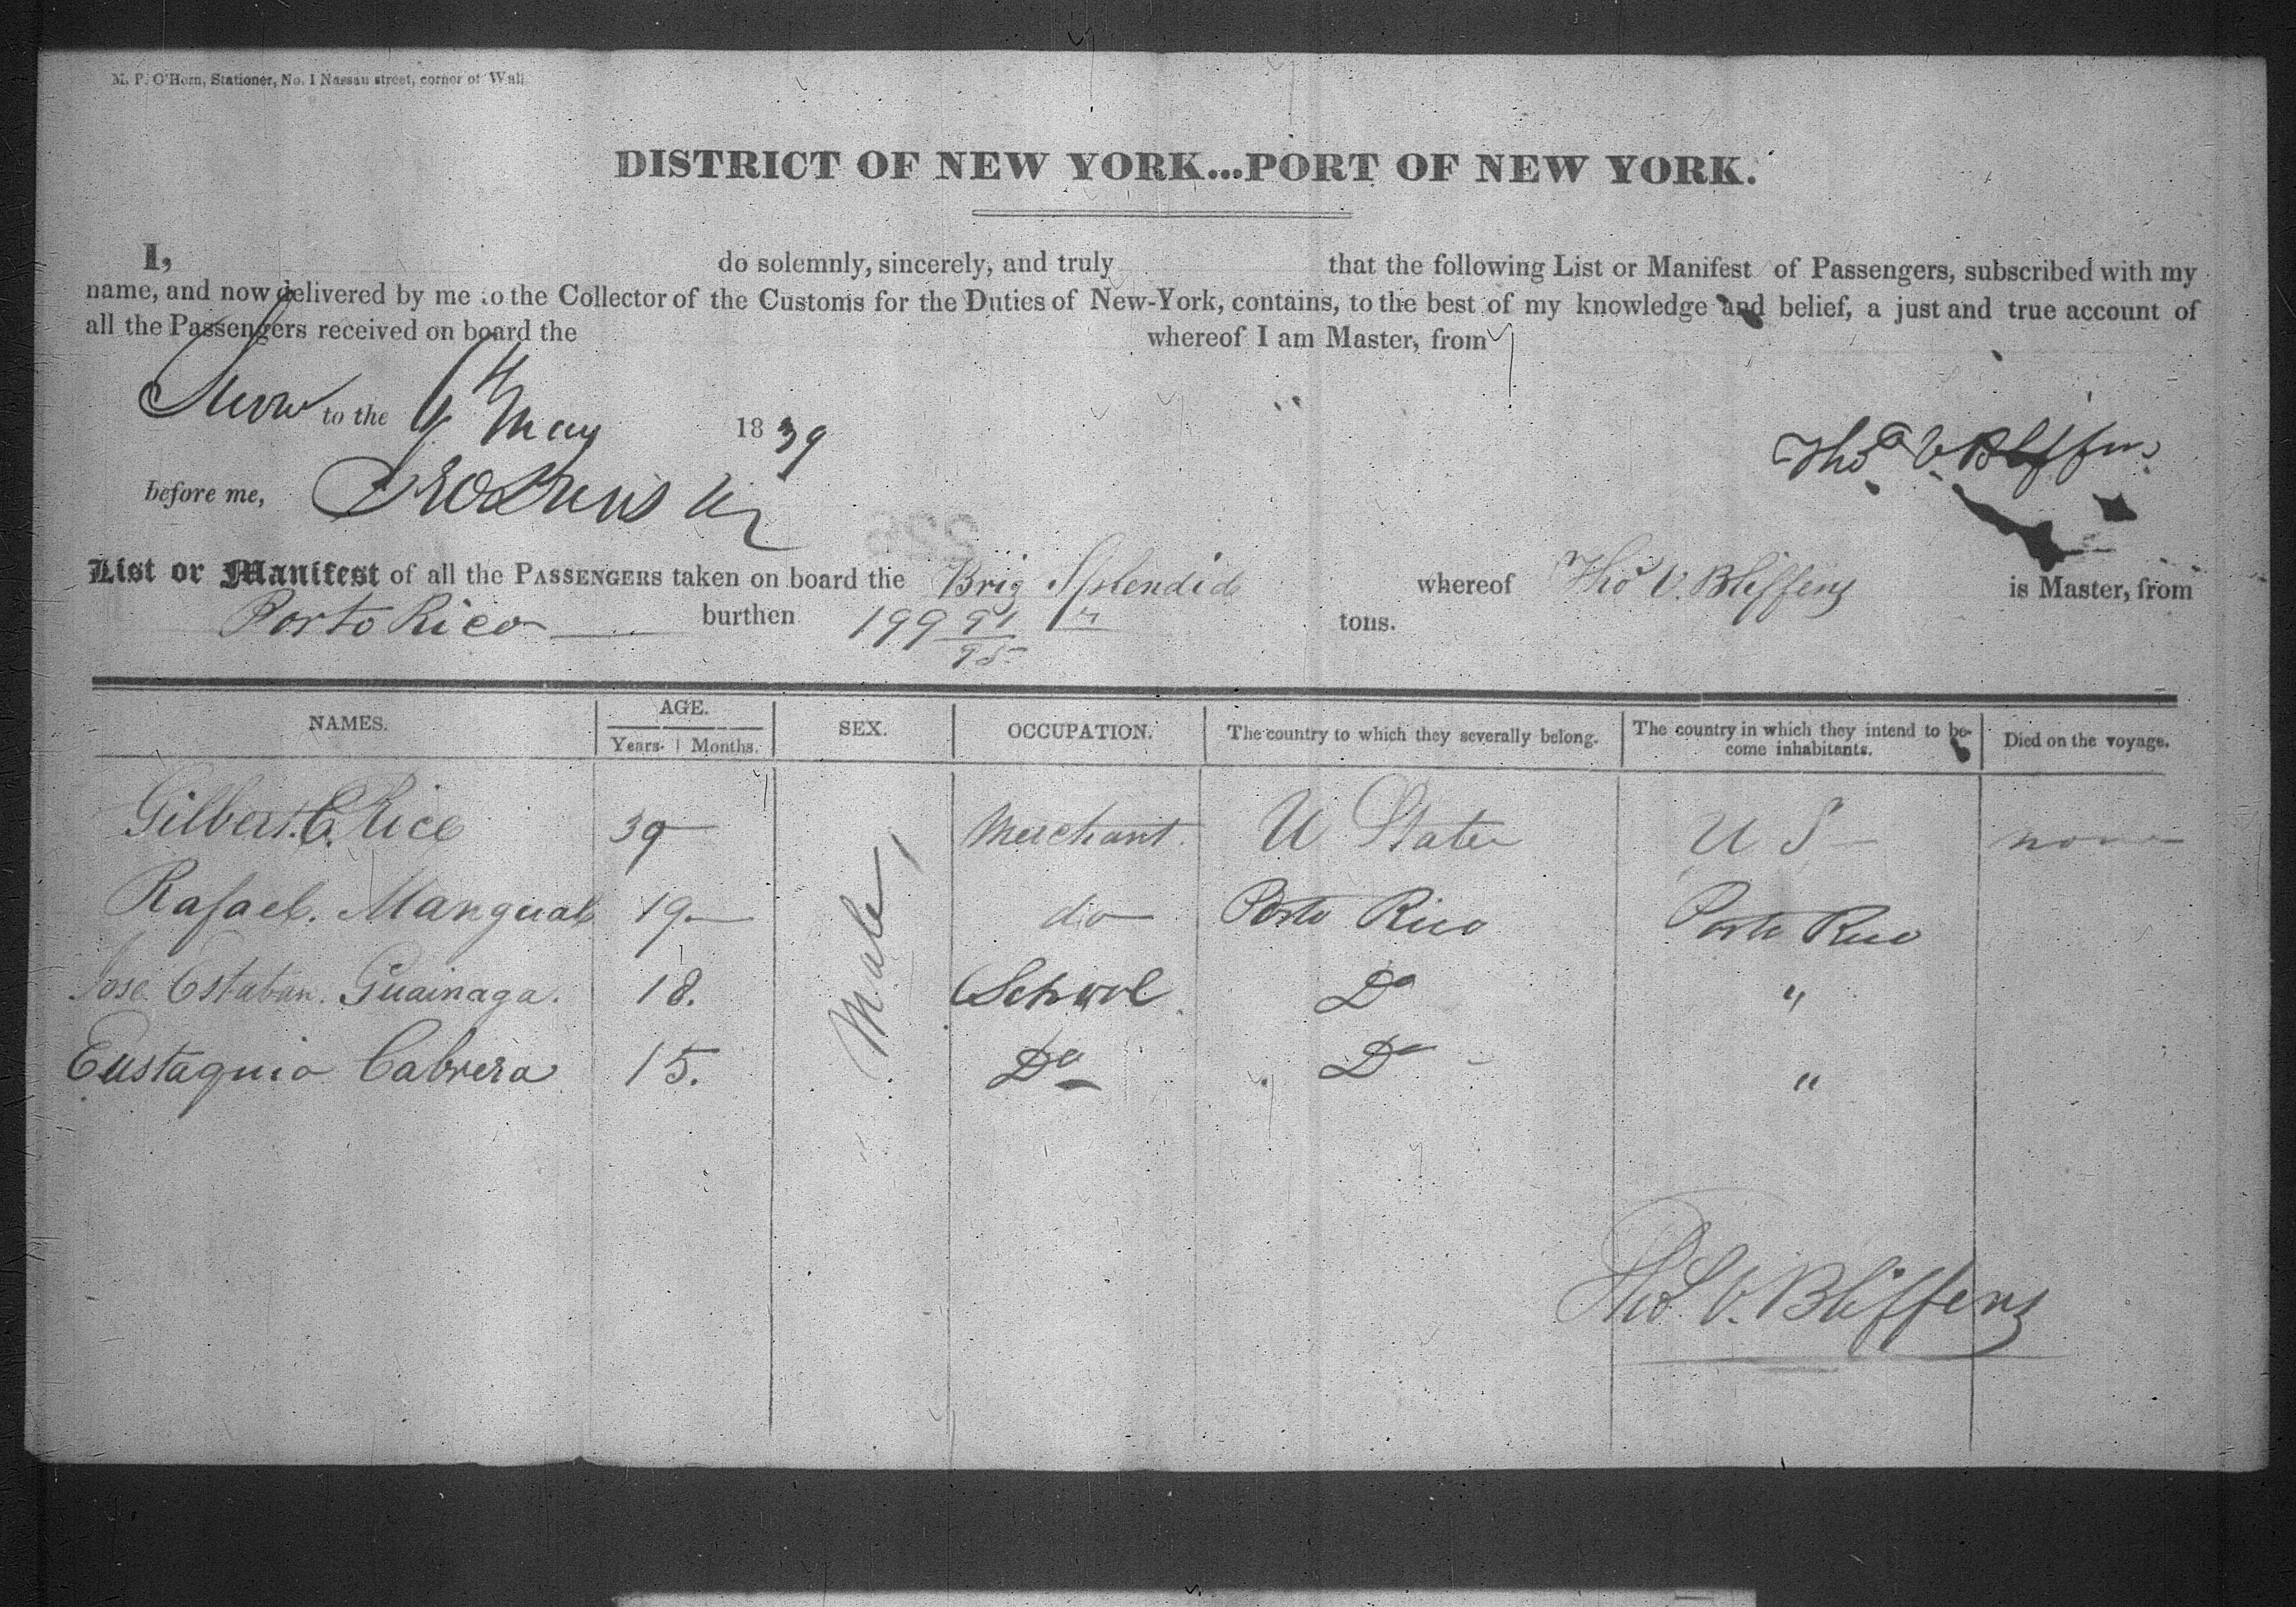 M. P. O'Horn, Stationer, No. 1 Nassau street, corner of Wall
DISTRICT OF NEW YORK...PORT OF NEW YORK.
I, do solemnly, sincerely, and truly that the following List or Manifest of Passengers, subscribed with my
name, and now delivered by me to the Collector of the Customs for the Duties of New-York, contains, to the best of my knowledge and belief, a just and true account of
all the Passengers received on board the whereof I am Master, from
to the May 1839
Thos V. Bliffens
before me,
List or Manifest of all the PASSENGERS taken on board the Brig Splendid whereof Thos V. Bliffens is Master, from
Porto Rico burthen 199 91/95 tons.
NAMES. AGE. Years. Months. SEX. OCCUPATION. The country to which they severally belong. The country in which they intend to become inhabitants. Died on the voyage.
Gilbert C. Rice 39 Male Merchant. U State U S none
Rafael. Mangual 19 do Porto Rico Porto Rico
Jose Estaban. Guainaga. 18. School Do "
Eustaquio Cabrera 15. Do Do "
Thos. V. Bliffens